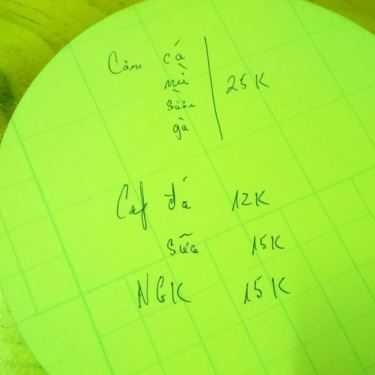 Cơm cá
mì
sườn
gà
25K
Caf đá 12K
sữa 15K
NGK 15K